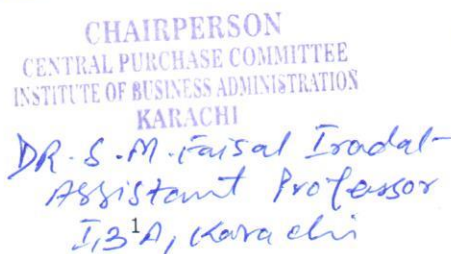 CHAIRPERSON
CENTRAL PURCHASE COMMITTEE
INSTITUTE OF BUSINESS ADMINISTRATION
KARACHI
DR. S. M. Faisal Iradat
Assistant Professor
I,B1A, Karachi